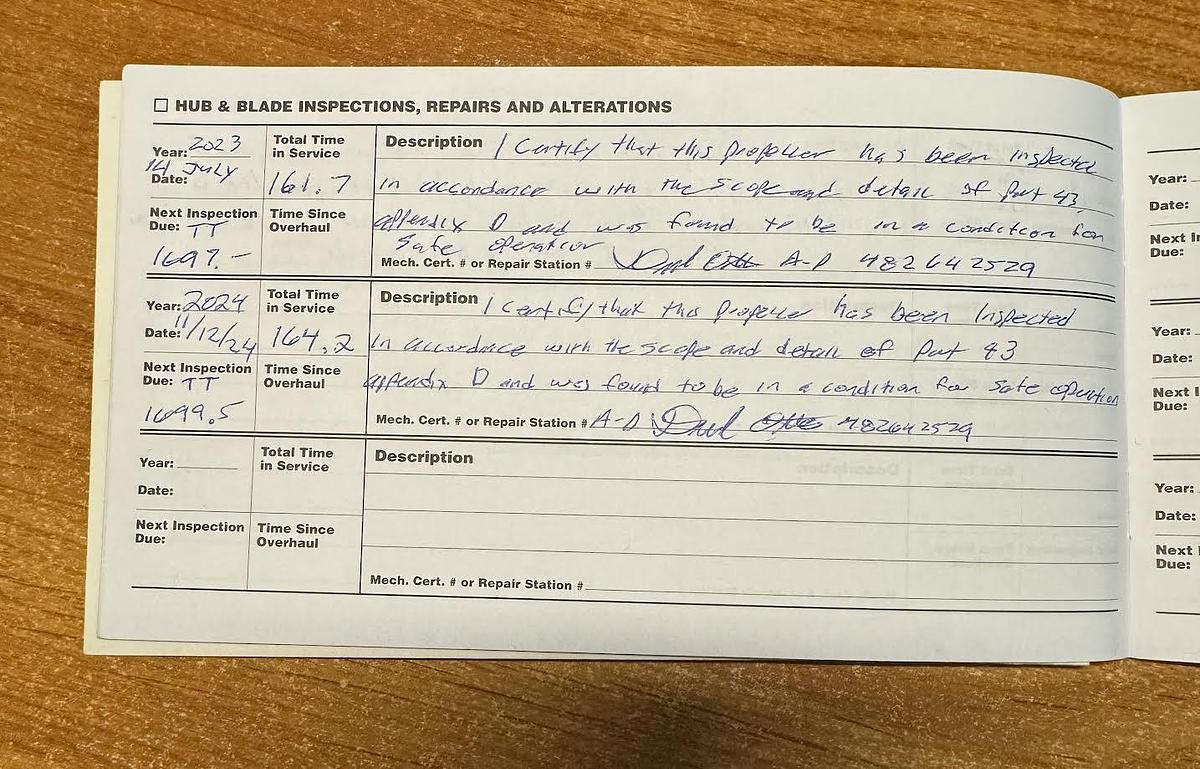 ☐ HUB & BLADE INSPECTIONS, REPAIRS AND ALTERATIONS
Year: 2023
14 July
Date:
Total Time
in Service
161.7
Next Inspection
Due: TT
1697.-
Time Since
Overhaul
Description I Certify that this propeller has been inspected
in accordance with the scope and detail of Part 43
appendix D and was found to be in a condition for
safe operation
Mech. Cert. # or Repair Station # A-P 482642529
Year: 2024
Date: 11/12/24
Total Time
in Service
164.2
Next Inspection
Due: TT
1699.5
Time Since
Overhaul
Description I certify that this propeller has been inspected
in accordance with the scope and detail of Part 43
appendix D and was found to be in a condition for safe operation
Mech. Cert. # or Repair Station # A-P 482642529
Year:
Date:
Total Time
in Service
Next Inspection
Due:
Time Since
Overhaul
Description
Mech. Cert. # or Repair Station #
Year:
Date:
Next
Due:
Year:
Date:
Next
Due:
Year:
Date:
Next
Due: